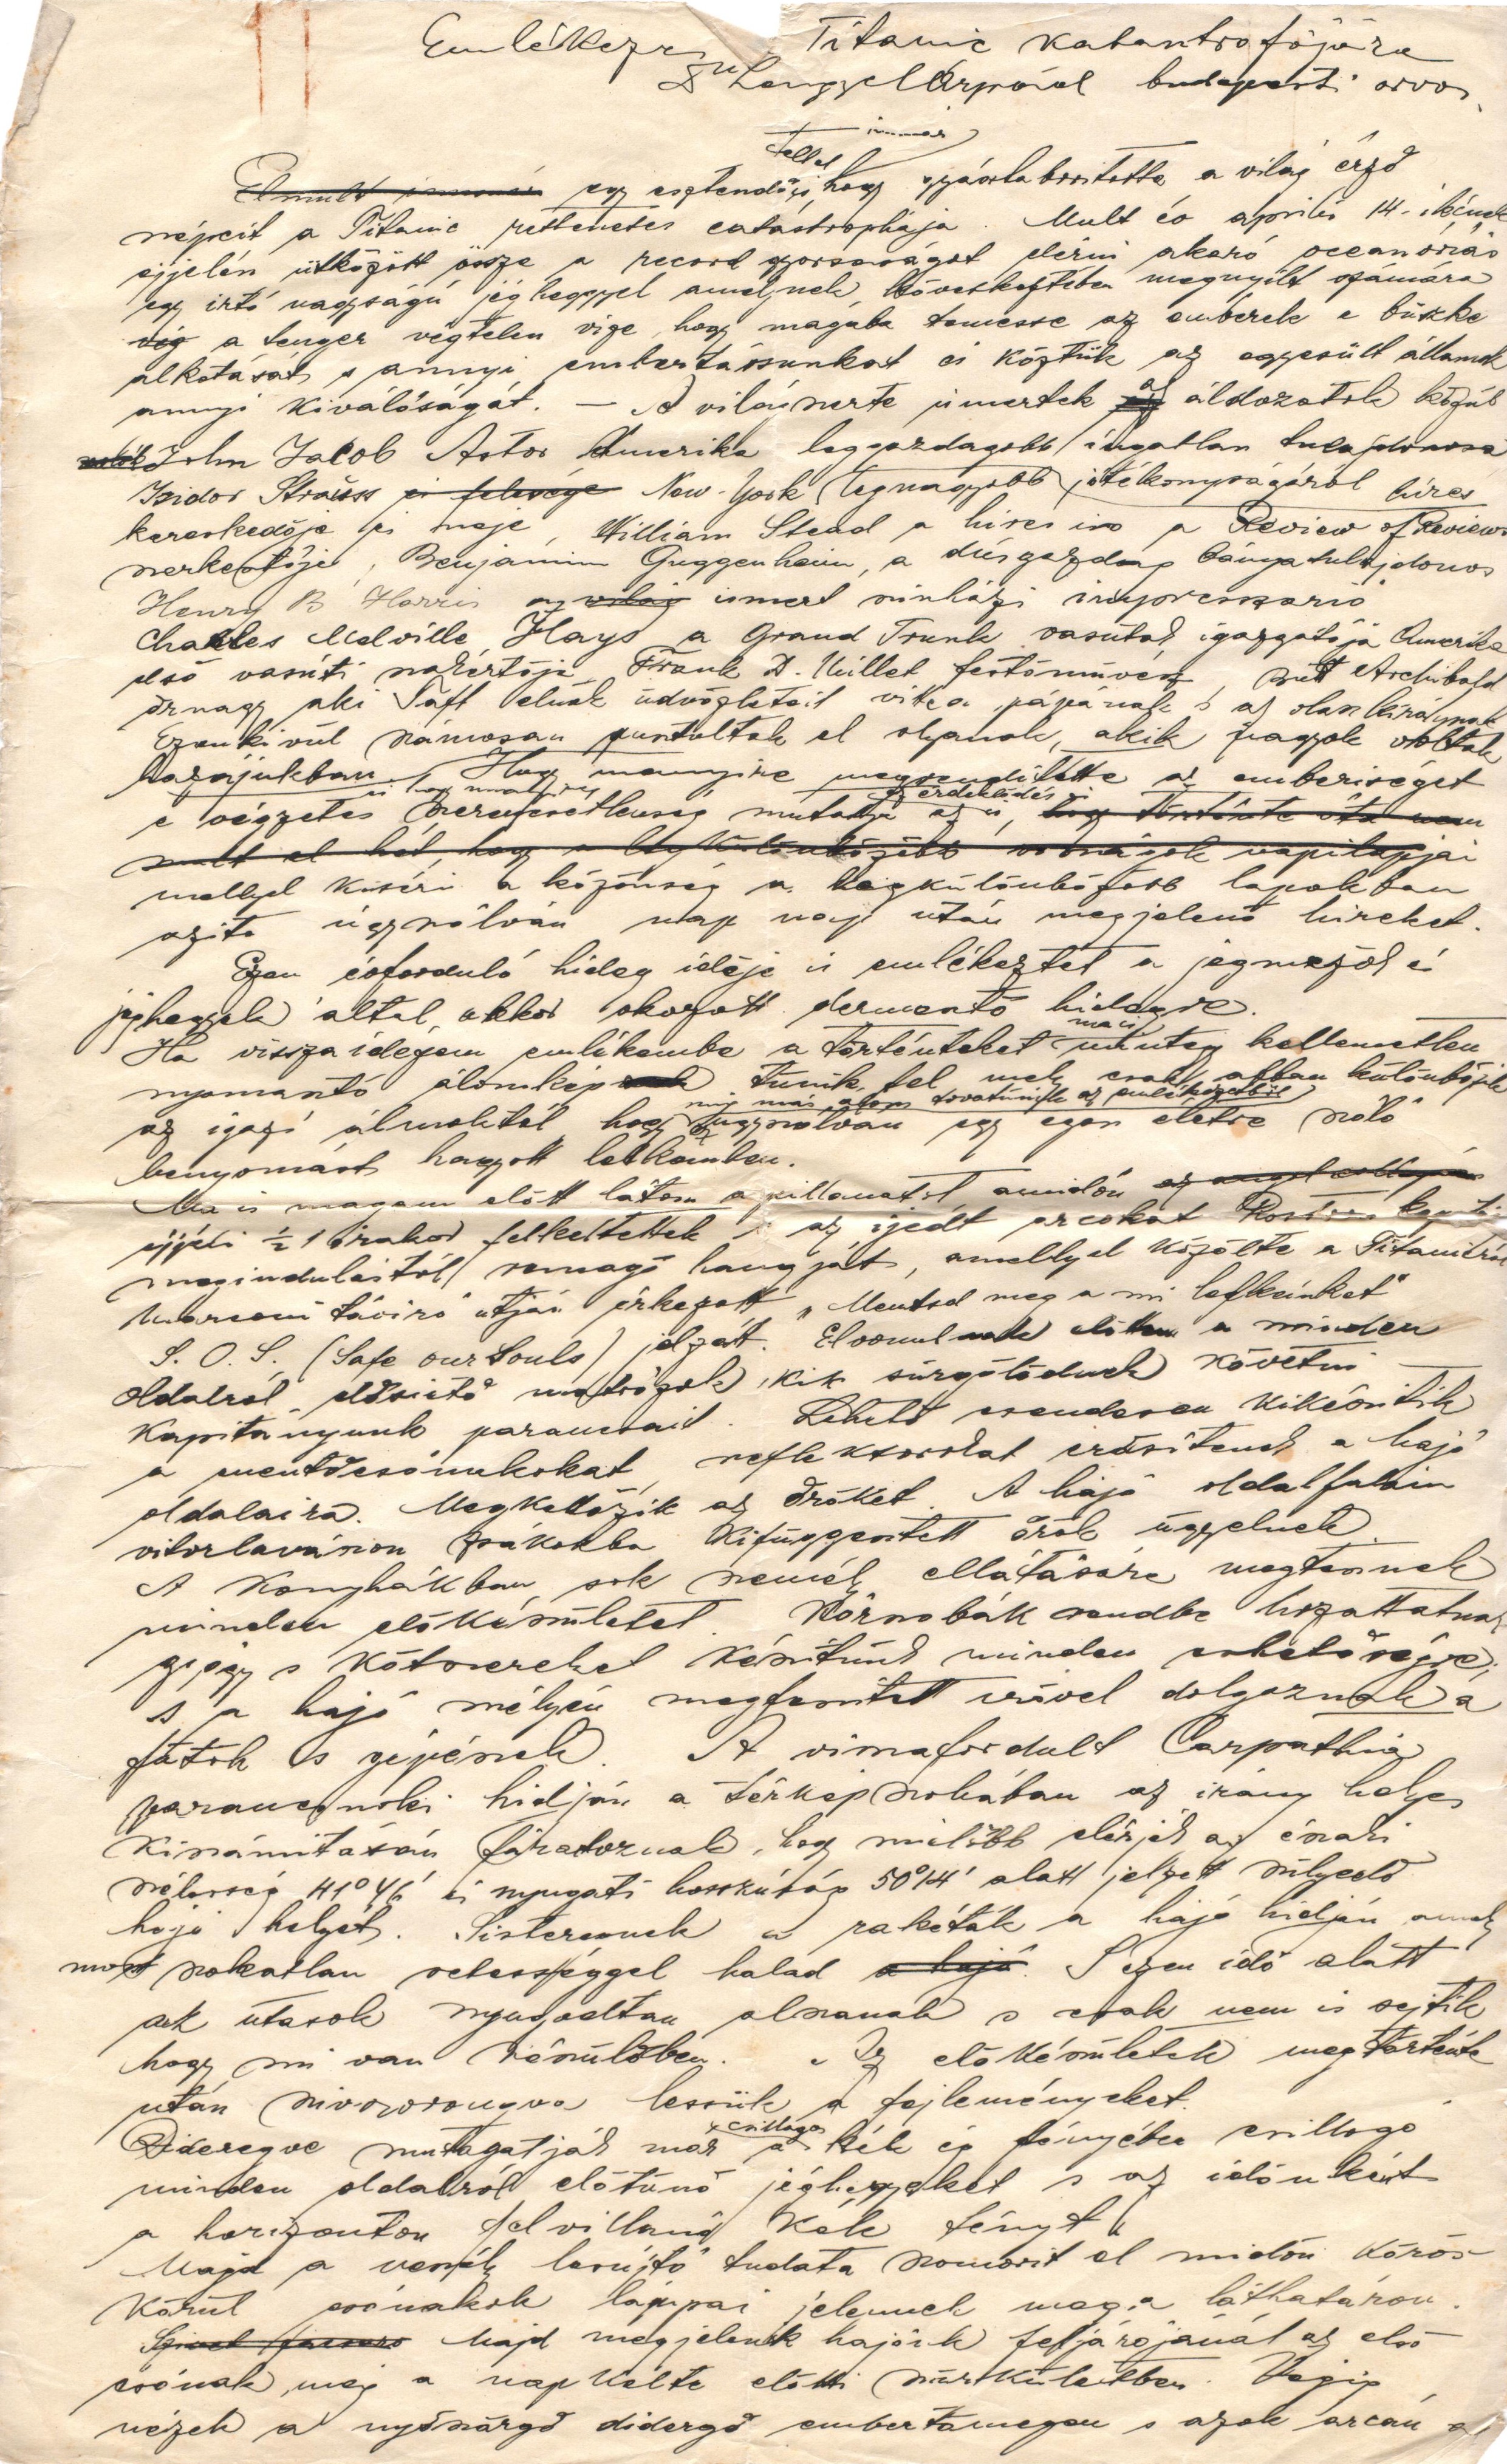 Emlékezés Titanic katastrofájára
Dr Lengyel Árpádtól budapesti orvos
immár
tellet
Elmult immár egy esztendője, hogy gyászba boritotta a világ érző
népeit a Titanic rettenetes catastrophája. Mult év április 14-ikének
éjjelén ütközött össze a record gyorsaságot elérni akaró oceanóriás
egy irtó nagyságú jéghegygyel amelynek következtében megnyilt számára
vig a tenger végtelen vize, hogy magába temesse az emberek e büszke
alkotását s annyi embertársunkat és köztük az egyesült államok
annyi kiválóságát. — A világszerte ismertek az áldozatok közül
John Jacob Astor Amerika leggazdagabb ingatlan tulajdonosa
Isidor Strauss és felesége New-York legnagyobb jótékonyságáról hires
kereskedője és neje, William Stead a hires iró a Review of Reviews
szerkesztője, Benjamin Guggenheim, a dúsgazdag bányatulajdonos
Henry B Harris a világ ismert szinházi impresszárió
Charles Melville Hays a Grand Trunk vasútak igazgatója Amerika
első vasúti szakértője Frank D. Millet festőművész, Butt Archibald
őrnagy aki Taft elnök üdvözleteit vitte a pápának s az olasz királynak
Ezenkivül számosan pusztultak el olyanok, akik nagyok voltak
hazájukban. Hogy mennyire megrenditette az emberiséget
az érdeklődés is
e végzetes szerencsétlenség mutatja az is, hogy története óta nem
mult el hét, hogy a legkülönbözőbb országok napilapjai
mellyel kiséri a közönség a legkülönbözőbb lapokban
azóta úgyszólván nap nap után megjelenő hireket.
Ezen évforduló hideg ideje is emlékeztet a jégmezők és
jéghegyek által akkor okozott dermesztő hidegre.
ma is
Ha visszaidézem emlékembe a történteket mintegy kellemetlen
nyomasztó álomkép tünik fel mely csak abban különbözik
mig más álom tovatünik az emlékezetből
az igazi álmoktól hogy ez úgyszólván egy egész életre szóló
benyomást hagyott lelkemben.
Ma is magam előtt látom a pillanatot amidőn
éjjeli ½ 1 órakor felkeltettek s az ijedt arcokat Rostron kapitány
megindulástól remegő hangját, amellyel közölte a Titanicról
Marconi táviró útján érkezett „Mentsd meg a mi lelkeinket"
S. O. S. (Safe our Souls) jelzést. Elvonulnak előttem a minden
oldalról elősiető matrózok, kik sürgölődnek követni
Kapitányunk parancsait. Lehető csendesen kikészitik
a mentőcsónakokat, reflektorokat erősitenek a hajó
oldalaira. Megkettőzik az őröket. A hajó oldalfalain
vitorlavászon zsákokba kifüggesztett őrök ügyelnek.
A konyhákban sok személy ellátására megtesznek
minden előkészületet. Kórszobák rendbe hozattatnak
gyógy s kötszereket készitünk minden eshetőségre,
s a hajó mélyén megfeszitett erővel dolgoznak a
fűtők s gépészek. A visszafordult Carpathia
parancsnoki hidján a térképszobában az irány helyes
kiszámitásán fáradoznak, hogy mielőbb elérjék az északi
szélesség 41° 46' és nyugati hosszúság 50° 14' alatt jelzett sülyedő
hajó helyét. Sisteregnek a rakéták a hajó hidján amely
most szokatlan sebességgel halad a hajó. S ezen idő alatt
az utasok nyugodtan alszanak s csak nem is sejtik
hogy mi van készülőben. Az előkészületek megtörténte
után szivszorongva lessük a fejleményeket.
csillagos
Dideregve mutogatják már a kék ég fényében csillogó
minden oldalról előtünő jéghegyeket s az időnként
a horizonton felvillanó kék fényt
Majd a veszély lesujtó tudata szomorit el midőn körös
körül csónakok lámpái jelennek meg a láthatáron.
Majd megjelenik hajónk feljárójánál az első
csónak, még a napkelte előtti szürkületben. Végig
nézek a nyüzsgő didergő embertömegen s azok arcán a